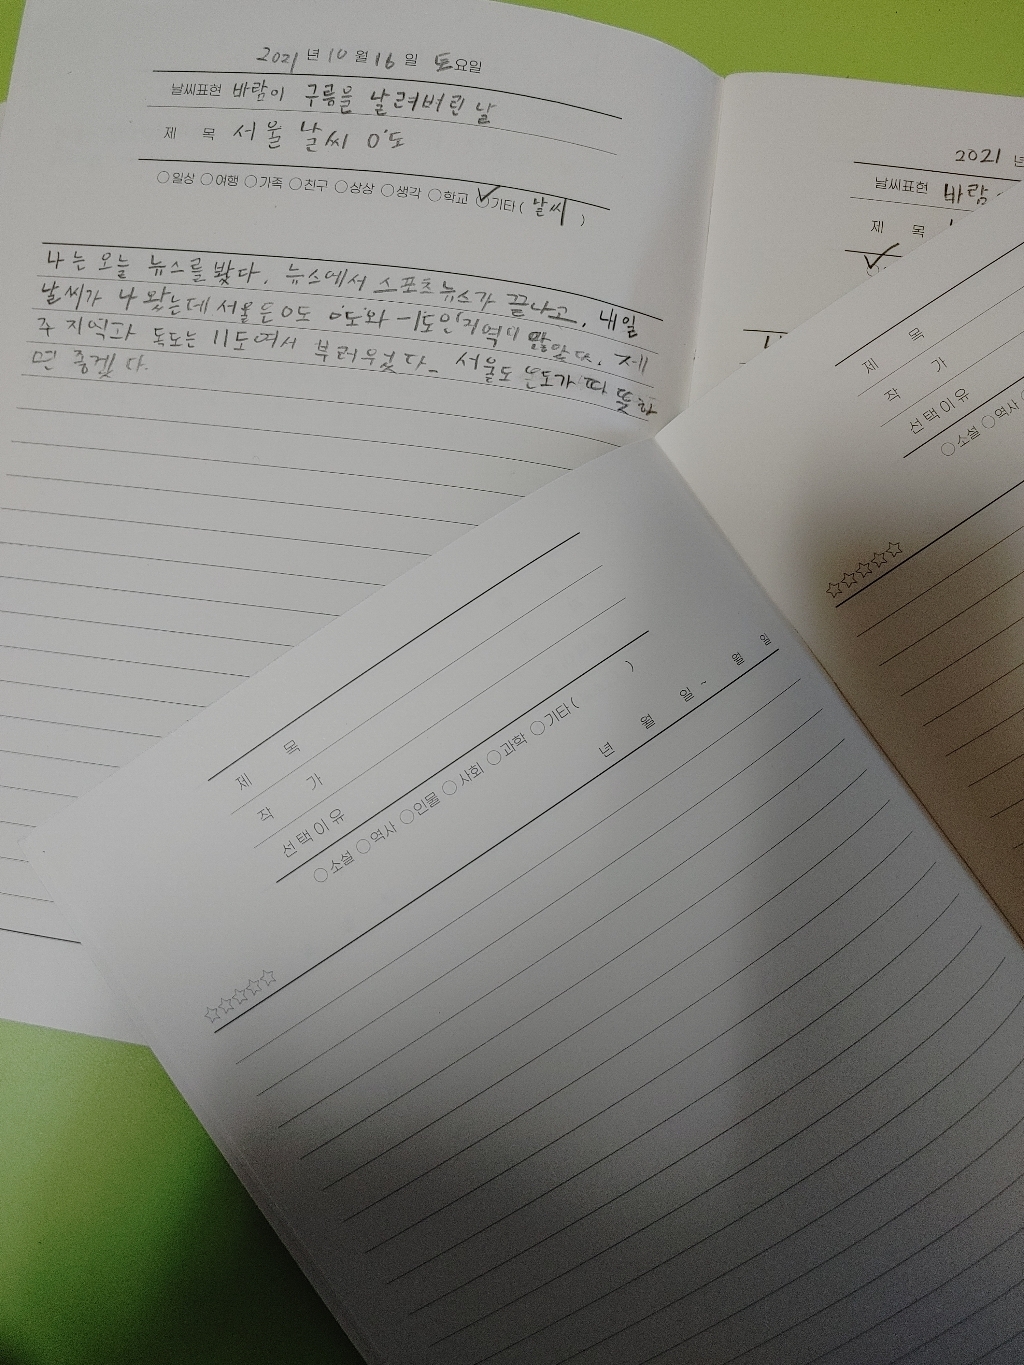 2021 년 10 월 16 일 토요일
날씨표현 바람이 구름을 날려버린 날
제 목 서울 날씨 0˚도
○일상 ○여행 ○가족 ○친구 ○상상 ○생각 ○학교 ○기타 ( 날씨 )
나는 오늘 뉴스를 봤다. 뉴스에서 스포츠뉴스가 끝나고, 내일
날씨가 나왔는데 서울은 0도 0˚도와 -1도인 지역이 많았다. 제
주 지역과 독도는 11도여서 부러웠다. 서울도 온도가 따뜻하
면 좋겠다.
2021 년
날씨표현 바람
제 목
제 목
작 가
선택이유
○소설 ○역사
☆☆☆☆☆
제 목
작 가
선택이유
○소설 ○역사 ○인물 ○사회 ○과학 ○기타 ( )
년 월 일 ~ 월 일
☆☆☆☆☆